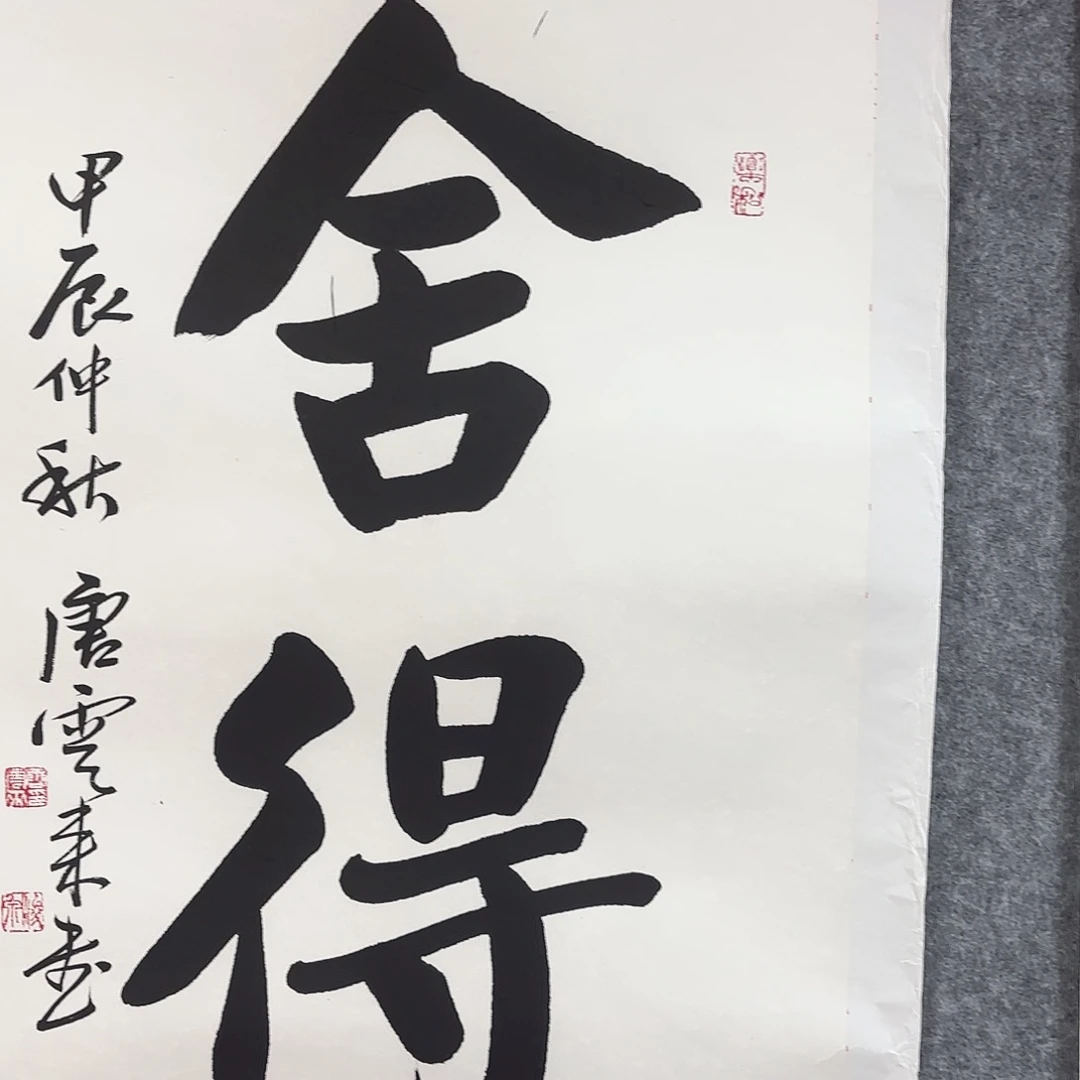 舍得
甲辰仲秋 唐雲来书